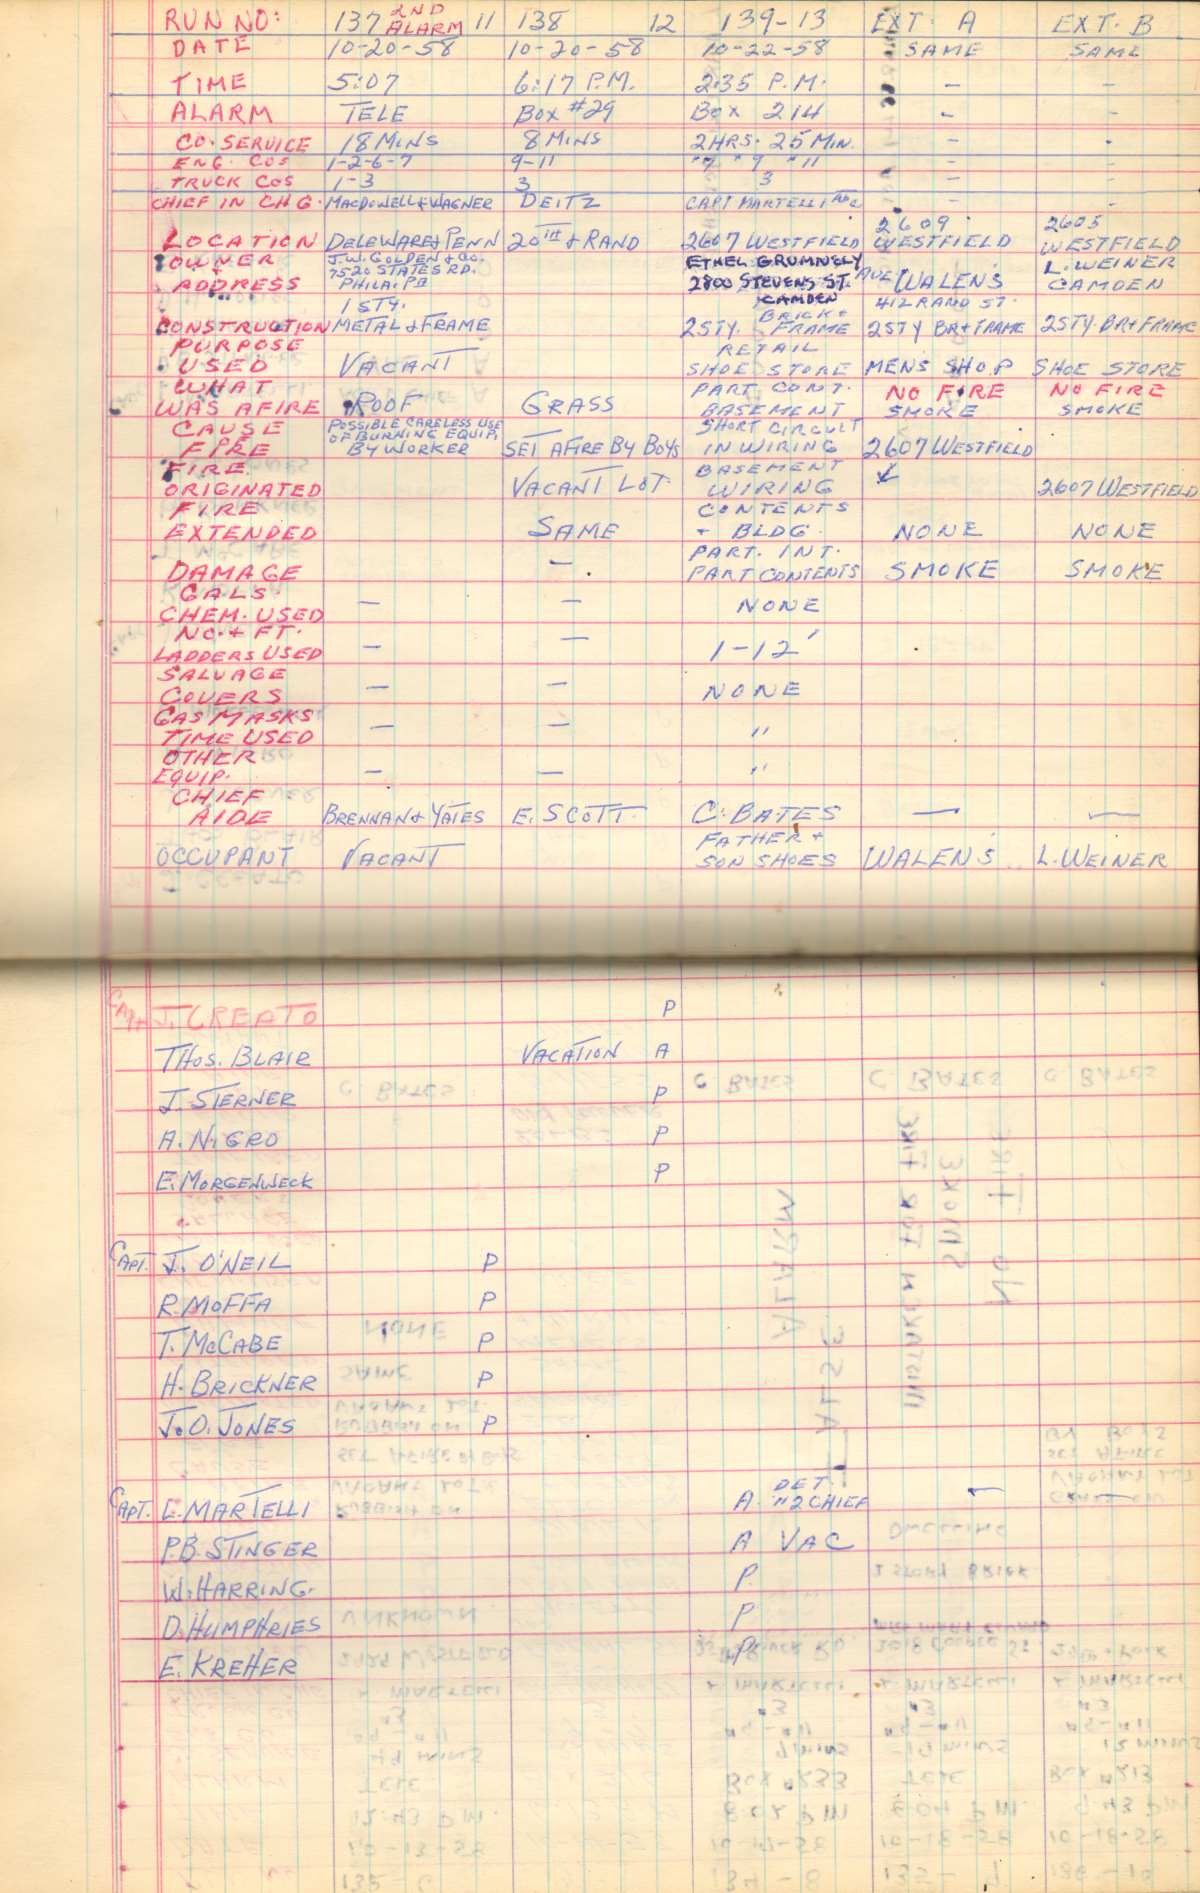 RUN NO: 137 2ND ALARM 11 138 12 139-13 EXT. A EXT. B
DATE 10-20-58 10-20-58 10-22-58 SAME SAME
TIME 5:07 6:17 P.M. 2:35 P.M. — —
ALARM TELE BOX #29 BOX 214 - -
CO. SERVICE 18 MINS 8 MINS 2HRS. 25 MIN. — -
ENG. COS 1-2-6-7 9-11 "7 " 9 " 11 — -
TRUCK COS 1-3 3 3 — -
CHIEF IN CHG. MACDOWELL & WAGNER DEITZ CAPT MARTELLI — —
LOCATION DELEWARE & PENN 20TH & RAND 2607 WESTFIELD 2609 WESTFIELD 2605 WESTFIELD
OWNER + ADDRESS J.W. GOLDEN & CO. 7520 STATES RD. PHILA. PA ETHEL GRUMNELY 2800 STEVENS ST. CAMDEN WALENS 412 RAND ST. L. WEINER CAMDEN
CONSTRUCTION 1 STY. METAL & FRAME 2STY. BRICK + FRAME 2STY BR + FRAME 2STY. BR + FRAME
PURPOSE USED VACANT RETAIL SHOE STORE MENS SHOP SHOE STORE
WHAT WAS AFIRE ROOF GRASS PART CONT. BASEMENT NO FIRE SMOKE NO FIRE SMOKE
CAUSE FIRE POSSIBLE CARELESS USE OF BURNING EQUIP. BY WORKER SET AFIRE BY BOYS SHORT CIRCUIT IN WIRING 2607 WESTFIELD
FIRE ORIGINATED VACANT LOT. BASEMENT WIRING ↙ 2607 WESTFIELD
FIRE EXTENDED SAME CONTENTS + BLDG. NONE NONE
DAMAGE — PART. INT. PART CONTENTS SMOKE SMOKE
GALS CHEM. USED — — NONE
NO. + FT. LADDERS USED — — 1-12'
SALVAGE COVERS — — NONE
GAS MASKS TIME USED — — "
OTHER EQUIP. — — "
CHIEF AIDE BRENNAN & YATES E. SCOTT. C. BATES — —
OCCUPANT VACANT FATHER + SON SHOES WALENS L. WEINER
CAPT. J. CREATO P
THOS. BLAIR VACATION A
J. STERNER P
A. NIGRO P
E. MORGENWECK P
CAPT. J. O'NEIL P
R. MOFFA P
T. McCABE P
H. BRICKNER P
J.O. JONES P
CAPT. E. MARTELLI A. DET. "2 CHIEF
P.B. STINGER A VAC
W. HARRING. P.
D. HUMPHRIES P
E. KREHER P